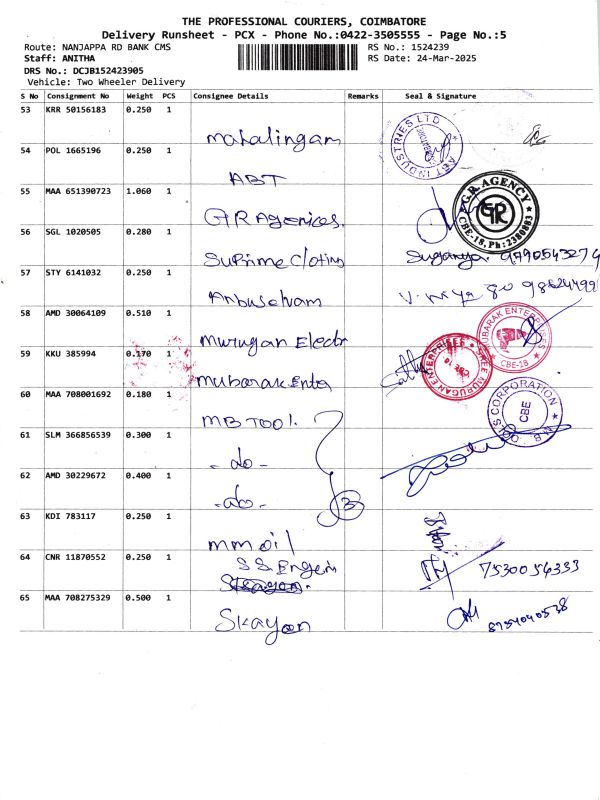 THE PROFESSIONAL COURIERS, COIMBATORE
Delivery Runsheet - PCX - Phone No.:0422-3505555 - Page No.:5
Route: NANJAPPA RD BANK CMS
RS No.: 1524239
Staff: ANITHA
RS Date: 24-Mar-2025
DRS No.: DCJB152423905
Vehicle: Two Wheeler Delivery
S No Consignment No Weight PCS Consignee Details Remarks Seal & Signature
53 KRR 50156183 0.250 1
Mahalingam
ABT INDUSTRIES LTD
54 POL 1665196 0.250 1
ABT
55 MAA 651390723 1.060 1
GR Agencies.
G.R. AGENCY
GR
CBE-18. Ph: 2380883
56 SGL 1020505 0.280 1
Suprime Cloting
Suganya 9790543274
57 STY 6141032 0.250 1
Anbuselvam
58 AMD 30064109 0.510 1
Murugan Electr
MUBARAK ENTERPRISES
CBE-18
59 KKU 385994 0.170 1
Mubarak Ente
SREE MURUGAN ENTERPRISES
CBE 18
60 MAA 708001692 0.180 1
MB Tool.
CORPORATION
CBE
61 SLM 366856539 0.300 1
-do-
62 AMD 30229672 0.400 1
-do-
3
63 KDI 783117 0.250 1
mm oil
64 CNR 11870552 0.250 1
S S Engem
7530056333
65 MAA 708275329 0.500 1
Skayon
8754040538